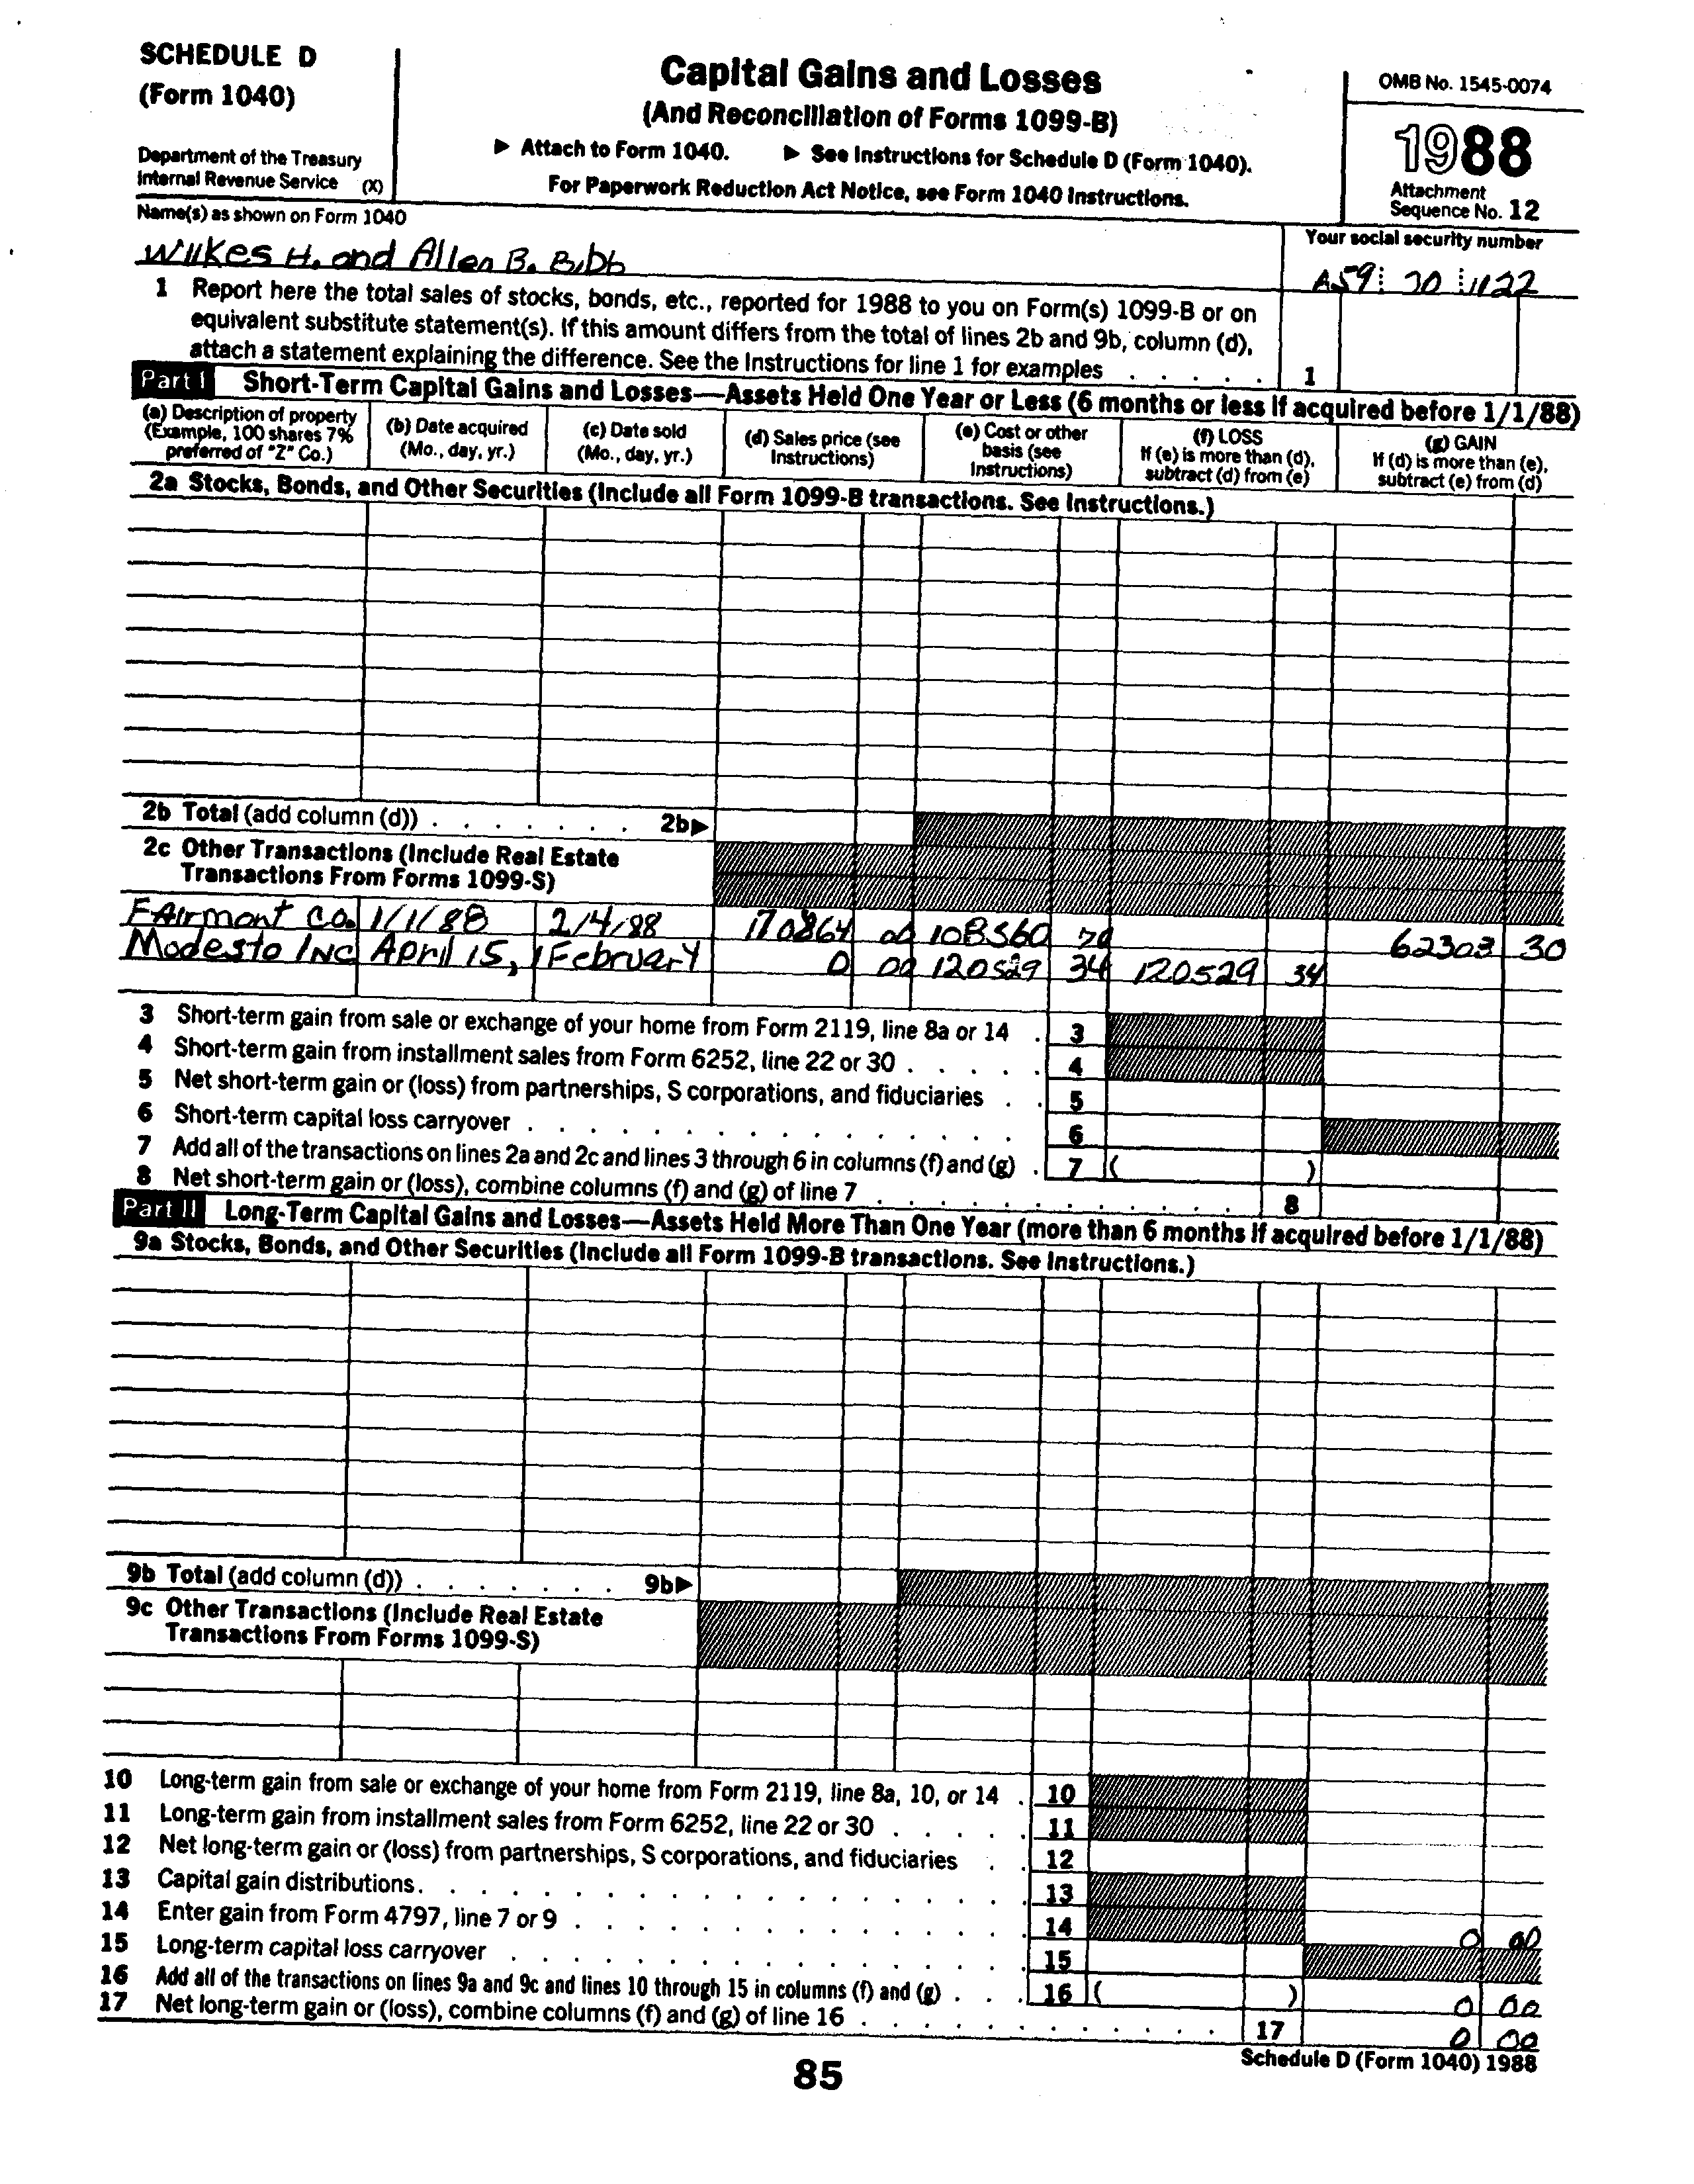 SCHEDULE D
(Form 1040)
Department of the Treasury
Internal Revenue Service (X)
Capital Gains and Losses
(And Reconciliation of Forms 1099-B)
▶ Attach to Form 1040. ▶ See Instructions for Schedule D (Form 1040).
For Paperwork Reduction Act Notice, see Form 1040 Instructions.
OMB No. 1545-0074
1988
Attachment
Sequence No. 12
Name(s) as shown on Form 1040
Wilkes H. and Allen B. Bibb
Your social security number
A59 20 1122
1 Report here the total sales of stocks, bonds, etc., reported for 1988 to you on Form(s) 1099-B or on
equivalent substitute statement(s). If this amount differs from the total of lines 2b and 9b, column (d),
attach a statement explaining the difference. See the Instructions for line 1 for examples . . . . . 1
Part I Short-Term Capital Gains and Losses—Assets Held One Year or Less (6 months or less if acquired before 1/1/88)
(a) Description of property
(Example, 100 shares 7%
preferred of "Z" Co.)
(b) Date acquired
(Mo., day, yr.)
(c) Date sold
(Mo., day, yr.)
(d) Sales price (see
Instructions)
(e) Cost or other
basis (see
Instructions)
(f) LOSS
If (e) is more than (d),
subtract (d) from (e)
(g) GAIN
If (d) is more than (e),
subtract (e) from (d)
2a Stocks, Bonds, and Other Securities (Include all Form 1099-B transactions. See Instructions.)
2b Total (add column (d)) . . . . . . . 2b▶
2c Other Transactions (Include Real Estate
Transactions From Forms 1099-S)
FAirmont Co. 1/1/88 2/4/88 170864 00 108560 70 62303 30
Modesto INC April 15, 1 February 0 00 120529 34 120529 34
3 Short-term gain from sale or exchange of your home from Form 2119, line 8a or 14 . 3
4 Short-term gain from installment sales from Form 6252, line 22 or 30 . . . . . 4
5 Net short-term gain or (loss) from partnerships, S corporations, and fiduciaries . . 5
6 Short-term capital loss carryover . . . . . . . . . . . . . . . . 6
7 Add all of the transactions on lines 2a and 2c and lines 3 through 6 in columns (f) and (g) . 7 ( )
8 Net short-term gain or (loss), combine columns (f) and (g) of line 7 . . . . . . . . . . . . 8
Part II Long-Term Capital Gains and Losses—Assets Held More Than One Year (more than 6 months if acquired before 1/1/88)
9a Stocks, Bonds, and Other Securities (Include all Form 1099-B transactions. See Instructions.)
9b Total (add column (d)) . . . . . . . 9b▶
9c Other Transactions (Include Real Estate
Transactions From Forms 1099-S)
10 Long-term gain from sale or exchange of your home from Form 2119, line 8a, 10, or 14 . 10
11 Long-term gain from installment sales from Form 6252, line 22 or 30 . . . . . 11
12 Net long-term gain or (loss) from partnerships, S corporations, and fiduciaries . . 12
13 Capital gain distributions. . . . . . . . . . . . . . . . . . . 13
14 Enter gain from Form 4797, line 7 or 9 . . . . . . . . . . . . . . 14 0 00
15 Long-term capital loss carryover . . . . . . . . . . . . . . . . 15
16 Add all of the transactions on lines 9a and 9c and lines 10 through 15 in columns (f) and (g) . . . 16 ( ) 0 00
17 Net long-term gain or (loss), combine columns (f) and (g) of line 16 . . . . . . . . . . . . 17 0 00
Schedule D (Form 1040) 1988
85